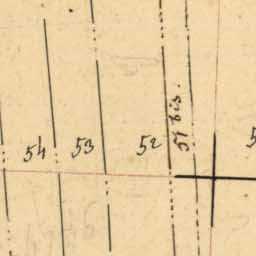 54 53 52 51 bis.
5